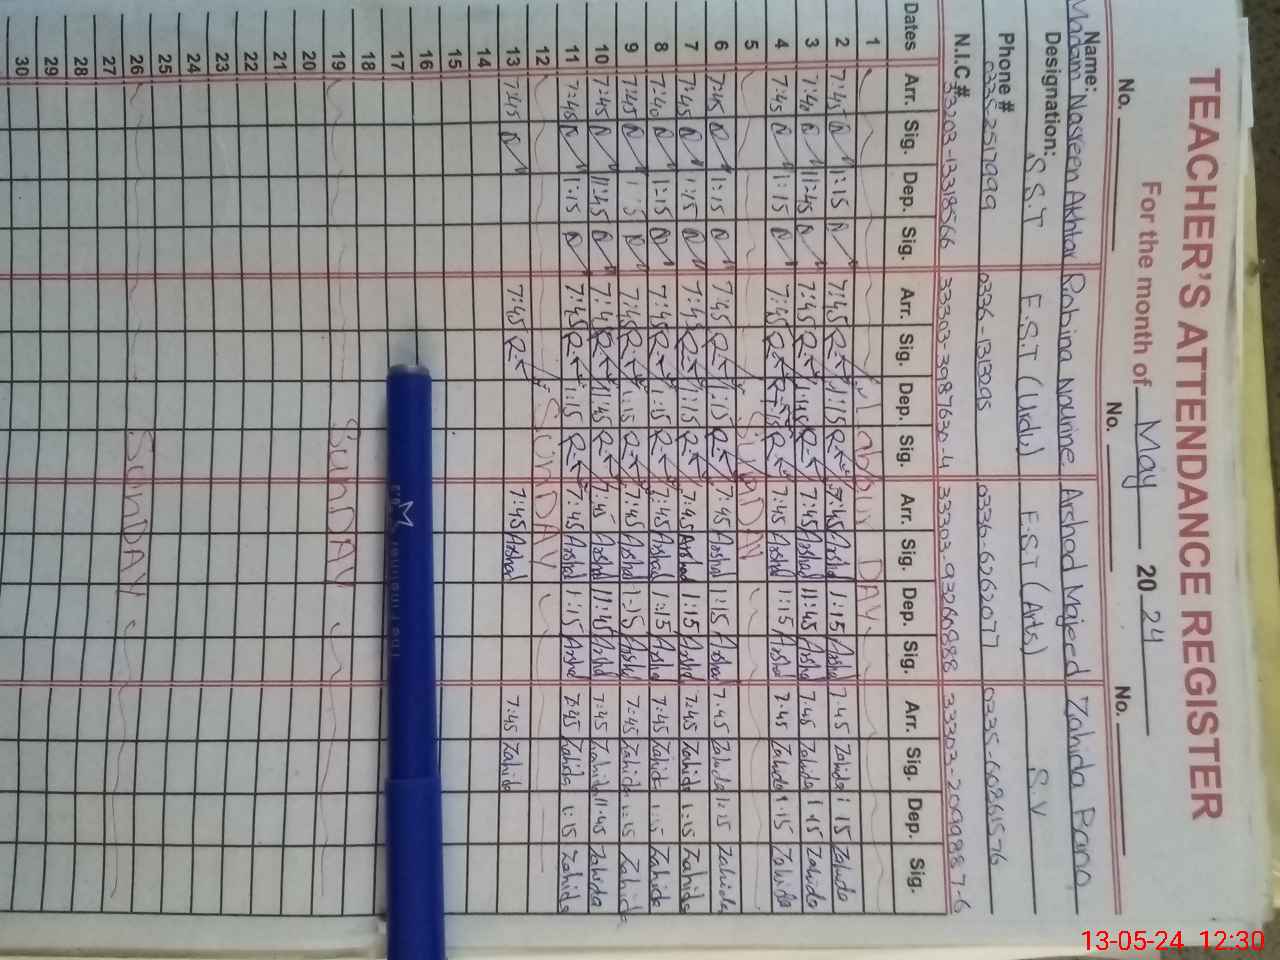 TEACHER'S ATTENDANCE REGISTER
For the month of May 20 24
No. No. No.
Name: Madam Nasreen Akhtar Robina Nourine Arshad Majeed Zahida Bano
Designation: S.S.T E.S.T (Urdu) E.S.T (Arts) S.V
Phone # 0335-2517999 0336-1313295 0336-6262077
N.I.C.#
Dates Arr. Sig. Dep. Sig. Arr. Sig. Dep. Sig. Arr. Sig. Dep. Sig. Arr. Sig. Dep. Sig.
1 Labour DAY
2 7:45 1:15 7:45 1:15 7:45 Arshad 1:15 Arshad 7:45 Zahida 1:15 Zahida
3 7:40 11:45 7:45 11:45 7:45 Arshad 11:45 Arshad 7:45 Zahida Zahida
4 7:45 1:15 7:45 7:45 Arshad 1:15 Arshad 7:45 Zahida 1:15 Zahida
5 SunDAY
6 7:45 1:15 7:45 1:15 7:45 Arshad 1:15 Arshad 7:45 Zahida 1:15 Zahida
7 7:45 1:15 7:45 1:15 7:45 Arshad 1:15 Arshad 7:45 Zahida 1:15 Zahida
8 7:40 1:15 7:45 1:15 7:45 Arshad 1:15 Arshad 7:45 Zahida 1:15 Zahida
9 7:45 1:15 7:45 1:15 7:45 Arshad 1:15 Arshad 7:45 Zahida 1:15 Zahida
10 7:45 11:45 7:45 11:45 7:45 Arshad 11:45 Arshad 7:45 Zahida 11:45 Zahida
11 7:45 1:15 7:45 1:15 7:45 Arshad 1:15 Arshad 7:45 Zahida 1:15 Zahida
12 SunDAY
13 7:45 7:45 7:45 Arshad 7:45 Zahida
14
15
16
17
18
19 SunDAY
20
21
22
23
24
25
26 SunDAY
27
28
29
30
13-05-24 12:30